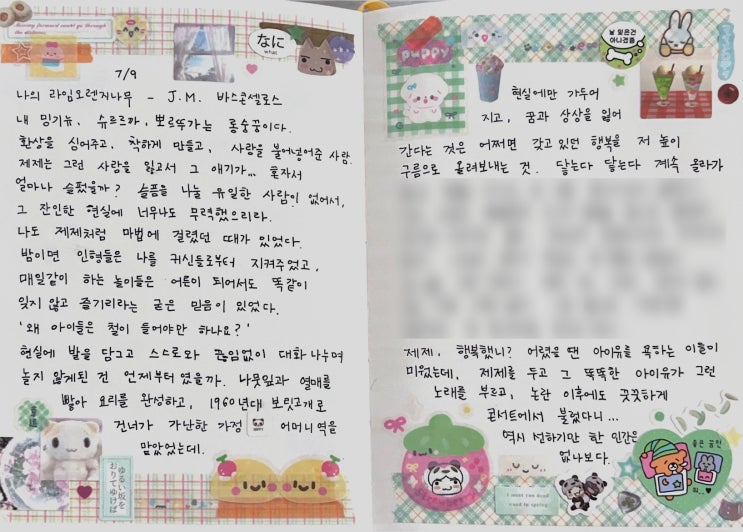 なに
what
7/9
나의 라임오렌지나무 - J.M. 바스콘셀로스
내 밍기뉴, 슈르르까, 뽀르뚜가는 롱숭꿍이다.
환상을 심어주고, 착하게 만들고, 사랑을 불어넣어준 사람.
제제는 그런 사랑을 잃고서 그 얘기가... 혼자서
얼마나 슬펐을까? 슬픔을 나눌 유일한 사람이 없어서,
그 잔인한 현실에 너무나도 무력했으리라.
나도 제제처럼 마법에 걸렸던 때가 있었다.
밤이면 인형들은 나를 귀신들로부터 지켜주었고,
매일같이 하는 놀이들은 어른이 되어서도 똑같이
잊지 않고 즐기리라는 굳은 믿음이 있었다.
'왜 아이들은 철이 들어야만 하나요?'
현실에 발을 담그고 스스로와 끊임없이 대화 나누며
놀지 않게된 건 언제부터였을까. 나뭇잎과 열매를
빻아 요리를 완성하고, 1960년대 보릿고개로
건너가 가난한 가정 어머니역을
맡았었는데.
ゆるい坂を
おりてゆけば
puppy
날 잃은건
아니겠죠
현실에만 가두어
지고, 꿈과 상상을 잃어
간다는 것은 어쩌면 갖고 있던 행복을 저 높이
구름으로 올려보내는 것. 닿는다 닿는다 계속 올라가
제제, 행복했니? 어렸을 땐 아이유를 욕하는 이들이
미웠는데, 제제를 두고 그 똑똑한 아이유가 그런
노래를 부르고, 논란 이후에도 꿋꿋하게
콘서트에서 불렀다니...
역시 선하기만 한 인간은
없나보다.
좋은 꿈만
꿔...♡